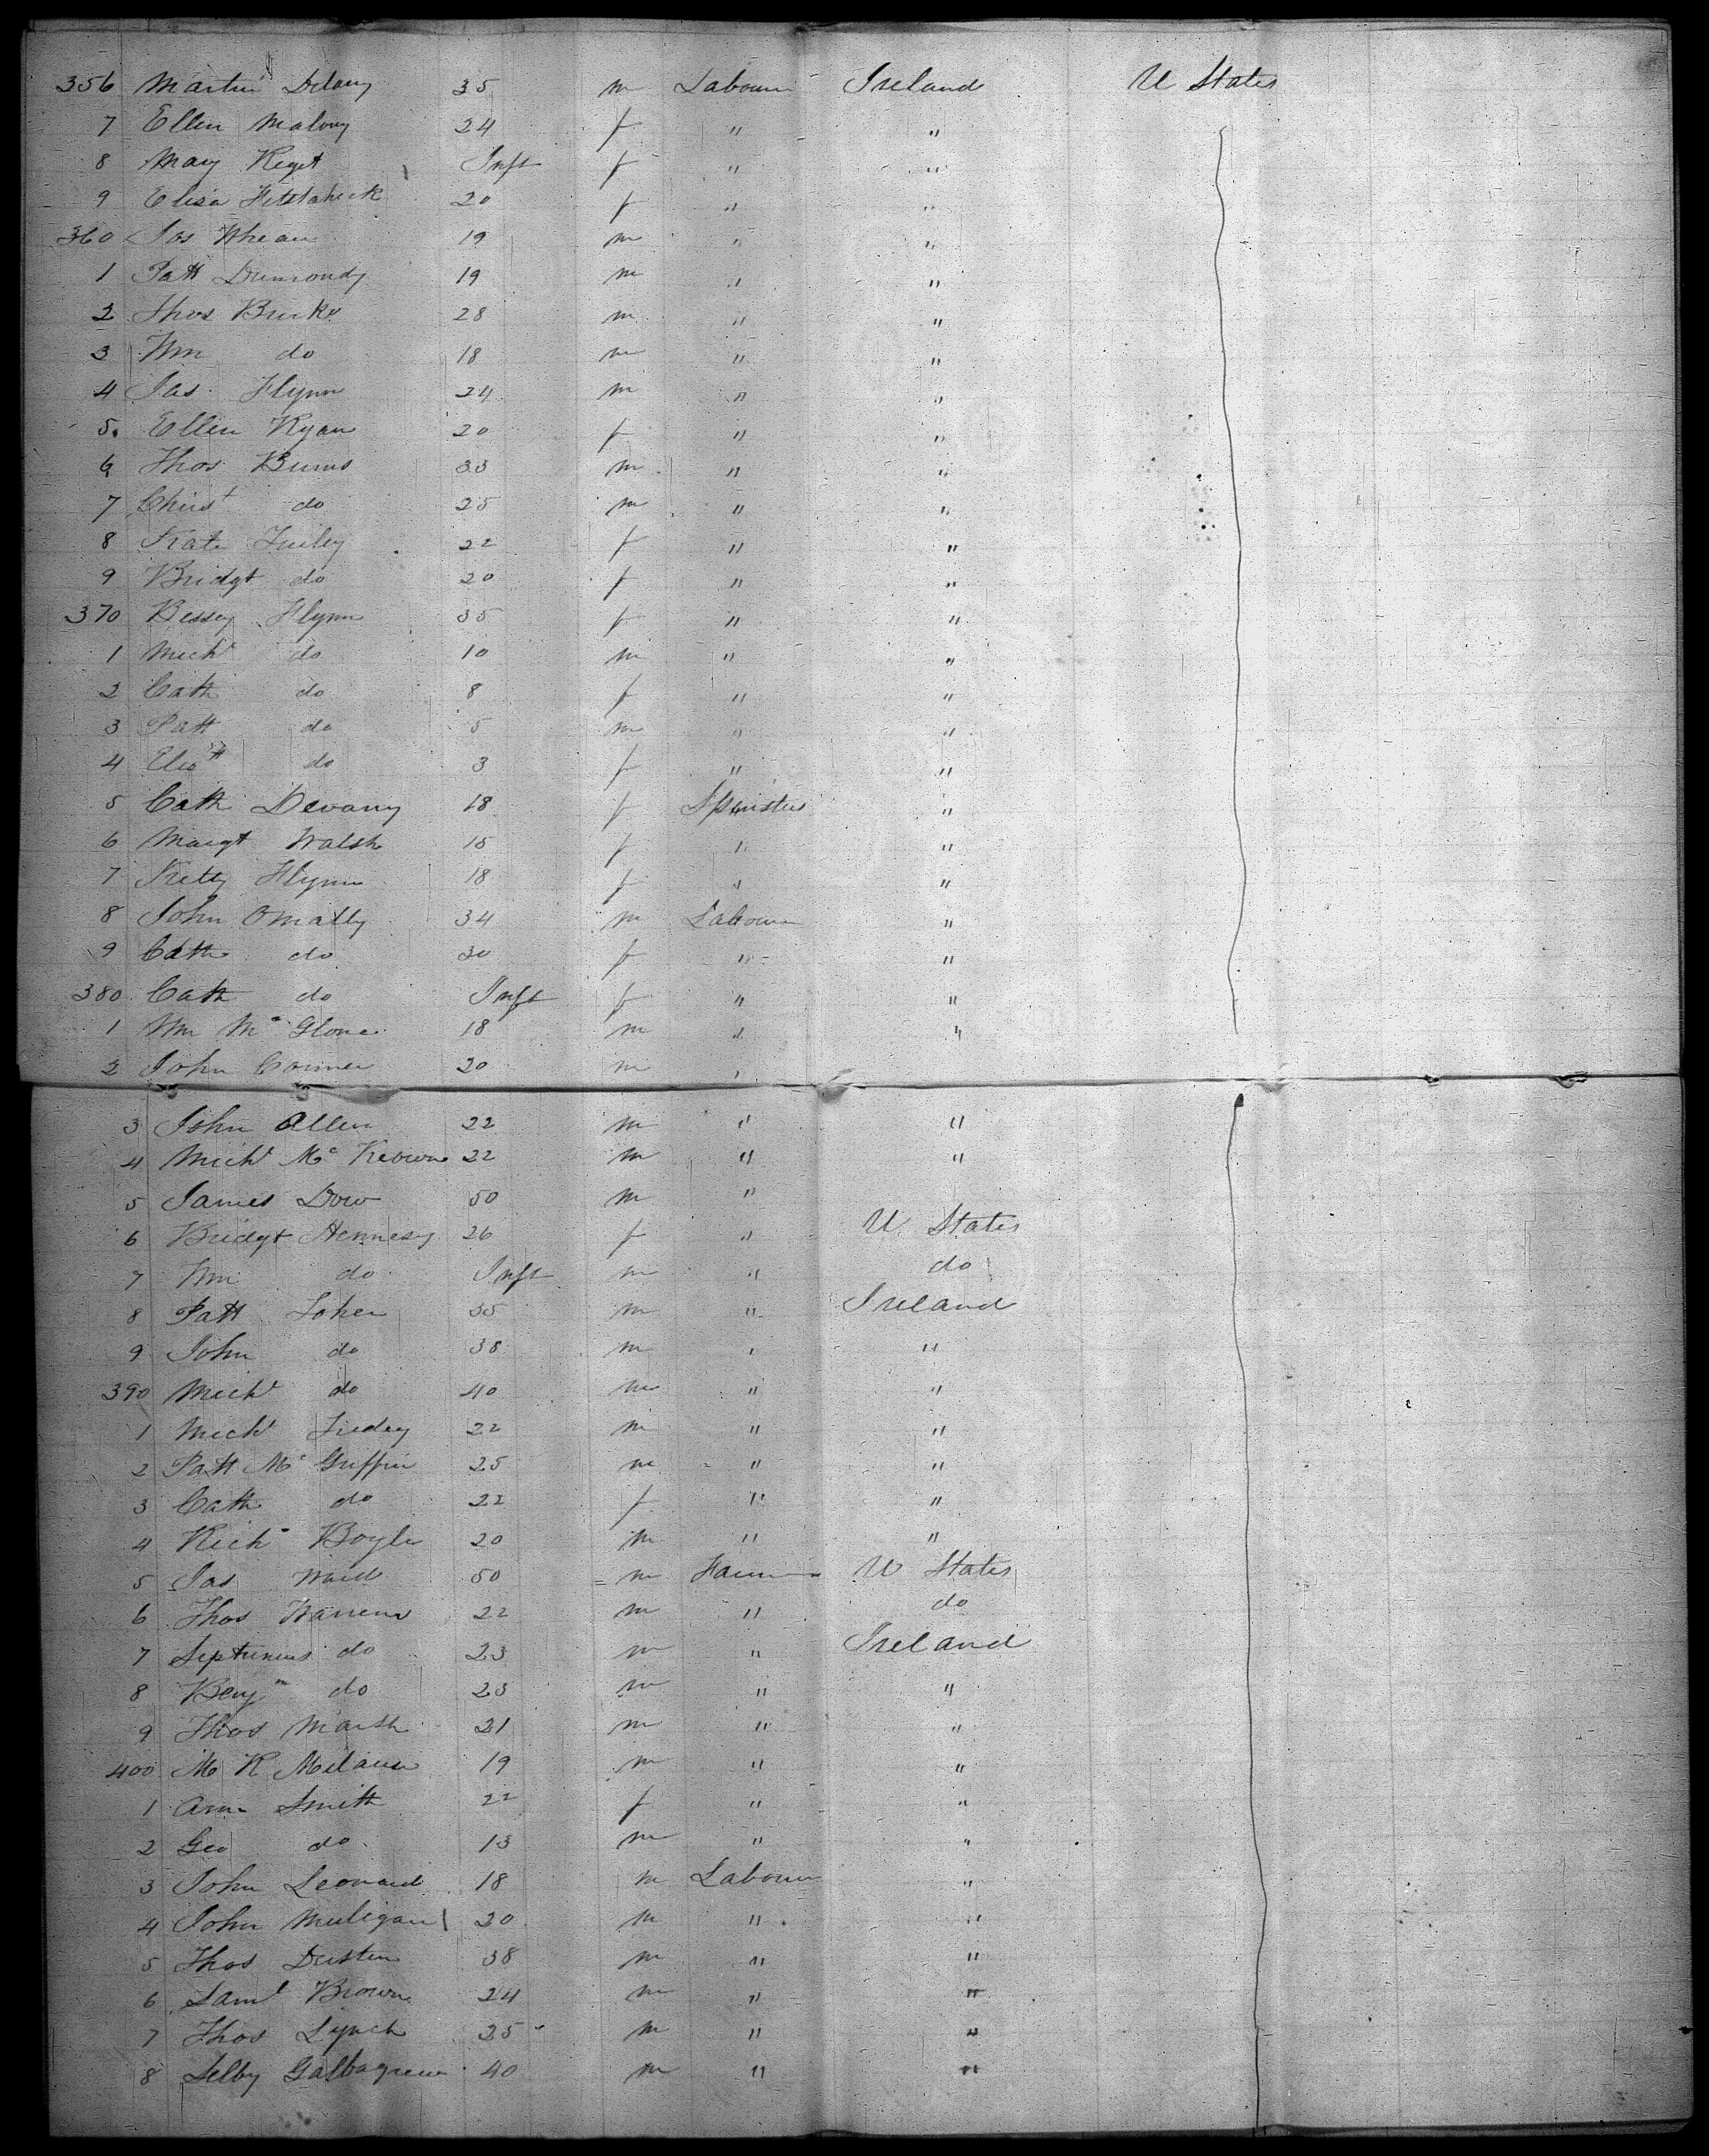 356 Martin Delany 35 m Labourer Ireland U States
7 Ellen Malony 24 f " "
8 Mary Inft f " "
9 Eliza 20 f " "
360 Jas 19 m " "
1 Patt 19 m " "
2 Thos Burke 28 m " "
3 Wm do 18 m " "
4 Jas Flynn 24 m " "
5 Ellen Ryan 20 f " "
6 Thos Burns 33 m " "
7 do 25 m " "
8 Kate 22 f " "
9 Bridgt do 20 f " "
370 Bessey Flynn 35 f " "
1 Michl do 10 m " "
2 Cath do 8 f " "
3 Patt do 5 m " "
4 do 3 f " "
5 Cath Devany 18 f Spinster "
6 Margt Walsh 15 f " "
7 Kitty Flynn 18 f " "
8 John OMally 34 m Labourer "
9 Cath do 30 f " "
380 Cath do Inft f " "
1 Wm Mc Glone 18 m " "
2 John 20 m "
3 John Allen 22 m " "
4 Michl Mc Keown 22 m " "
5 James Dow 50 m "
6 Bridgt Hennesy 26 f " U States
7 Wm do Inft m " do
8 Patt 35 m " Ireland
9 John do 38 m " "
390 Michl do 40 m " "
1 Michl 22 m " "
2 Patt Mc Griffin 25 m " "
3 Cath do 22 f " "
4 Richd Boyle 20 m " "
5 Jas 50 m Farmer U States
6 Thos Warren 22 m " do
7 Septimus do 23 m " Ireland
8 Benjn do 23 m " "
9 Thos Marsh 21 m " "
400 M K 19 m " "
1 Ann Smith 22 f " "
2 Geo do 13 m " "
3 John Leonard 18 m Labourer "
4 John Muligan 20 m " "
5 Thos 38 m " "
6 Saml Brown 24 m " "
7 Thos Lynch 25 m " "
8 Selby 40 m " "